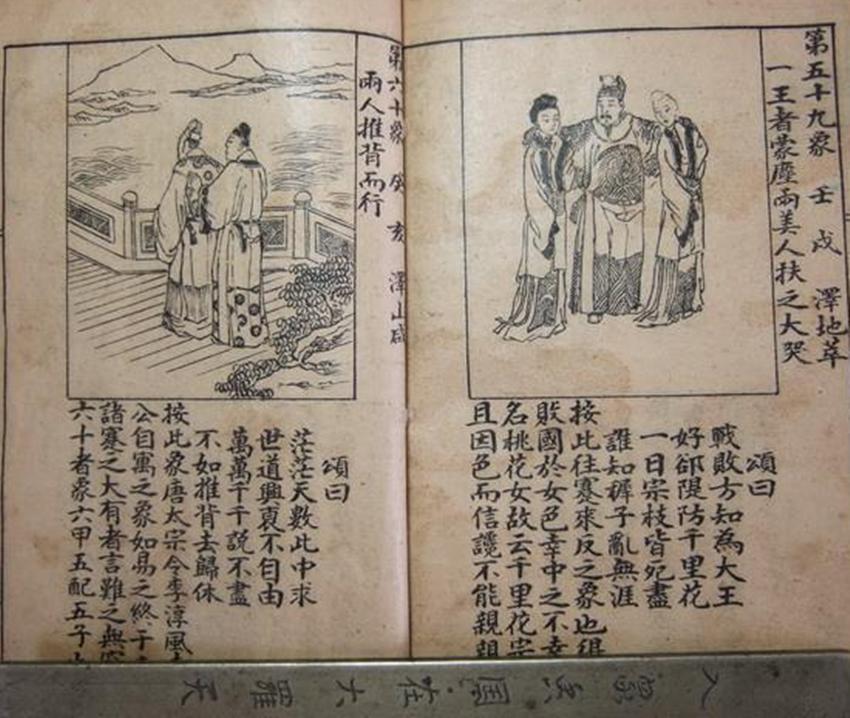 第五十九象 壬戌 澤地萃
一王者蒙塵兩美人扶之大哭
頌曰
戰敗方知為大王
好卻隄防千里花
一日宗枝皆宛盡
誰知穉子亂無涯
按此往蹇來反之象也得
敗國於女色幸中之不幸
名桃花女故云千里花宗
且因色而信讒不能親親
第六十象 癸亥 澤山咸
兩人推背而行
頌曰
茫茫天數此中求
世道興衰不自由
萬萬千千說不盡
不如推背去歸休
按此象唐太宗令李淳風
公自寓之象如易之終于
諸蹇之大有者言難之無
六十者象六甲五配五子